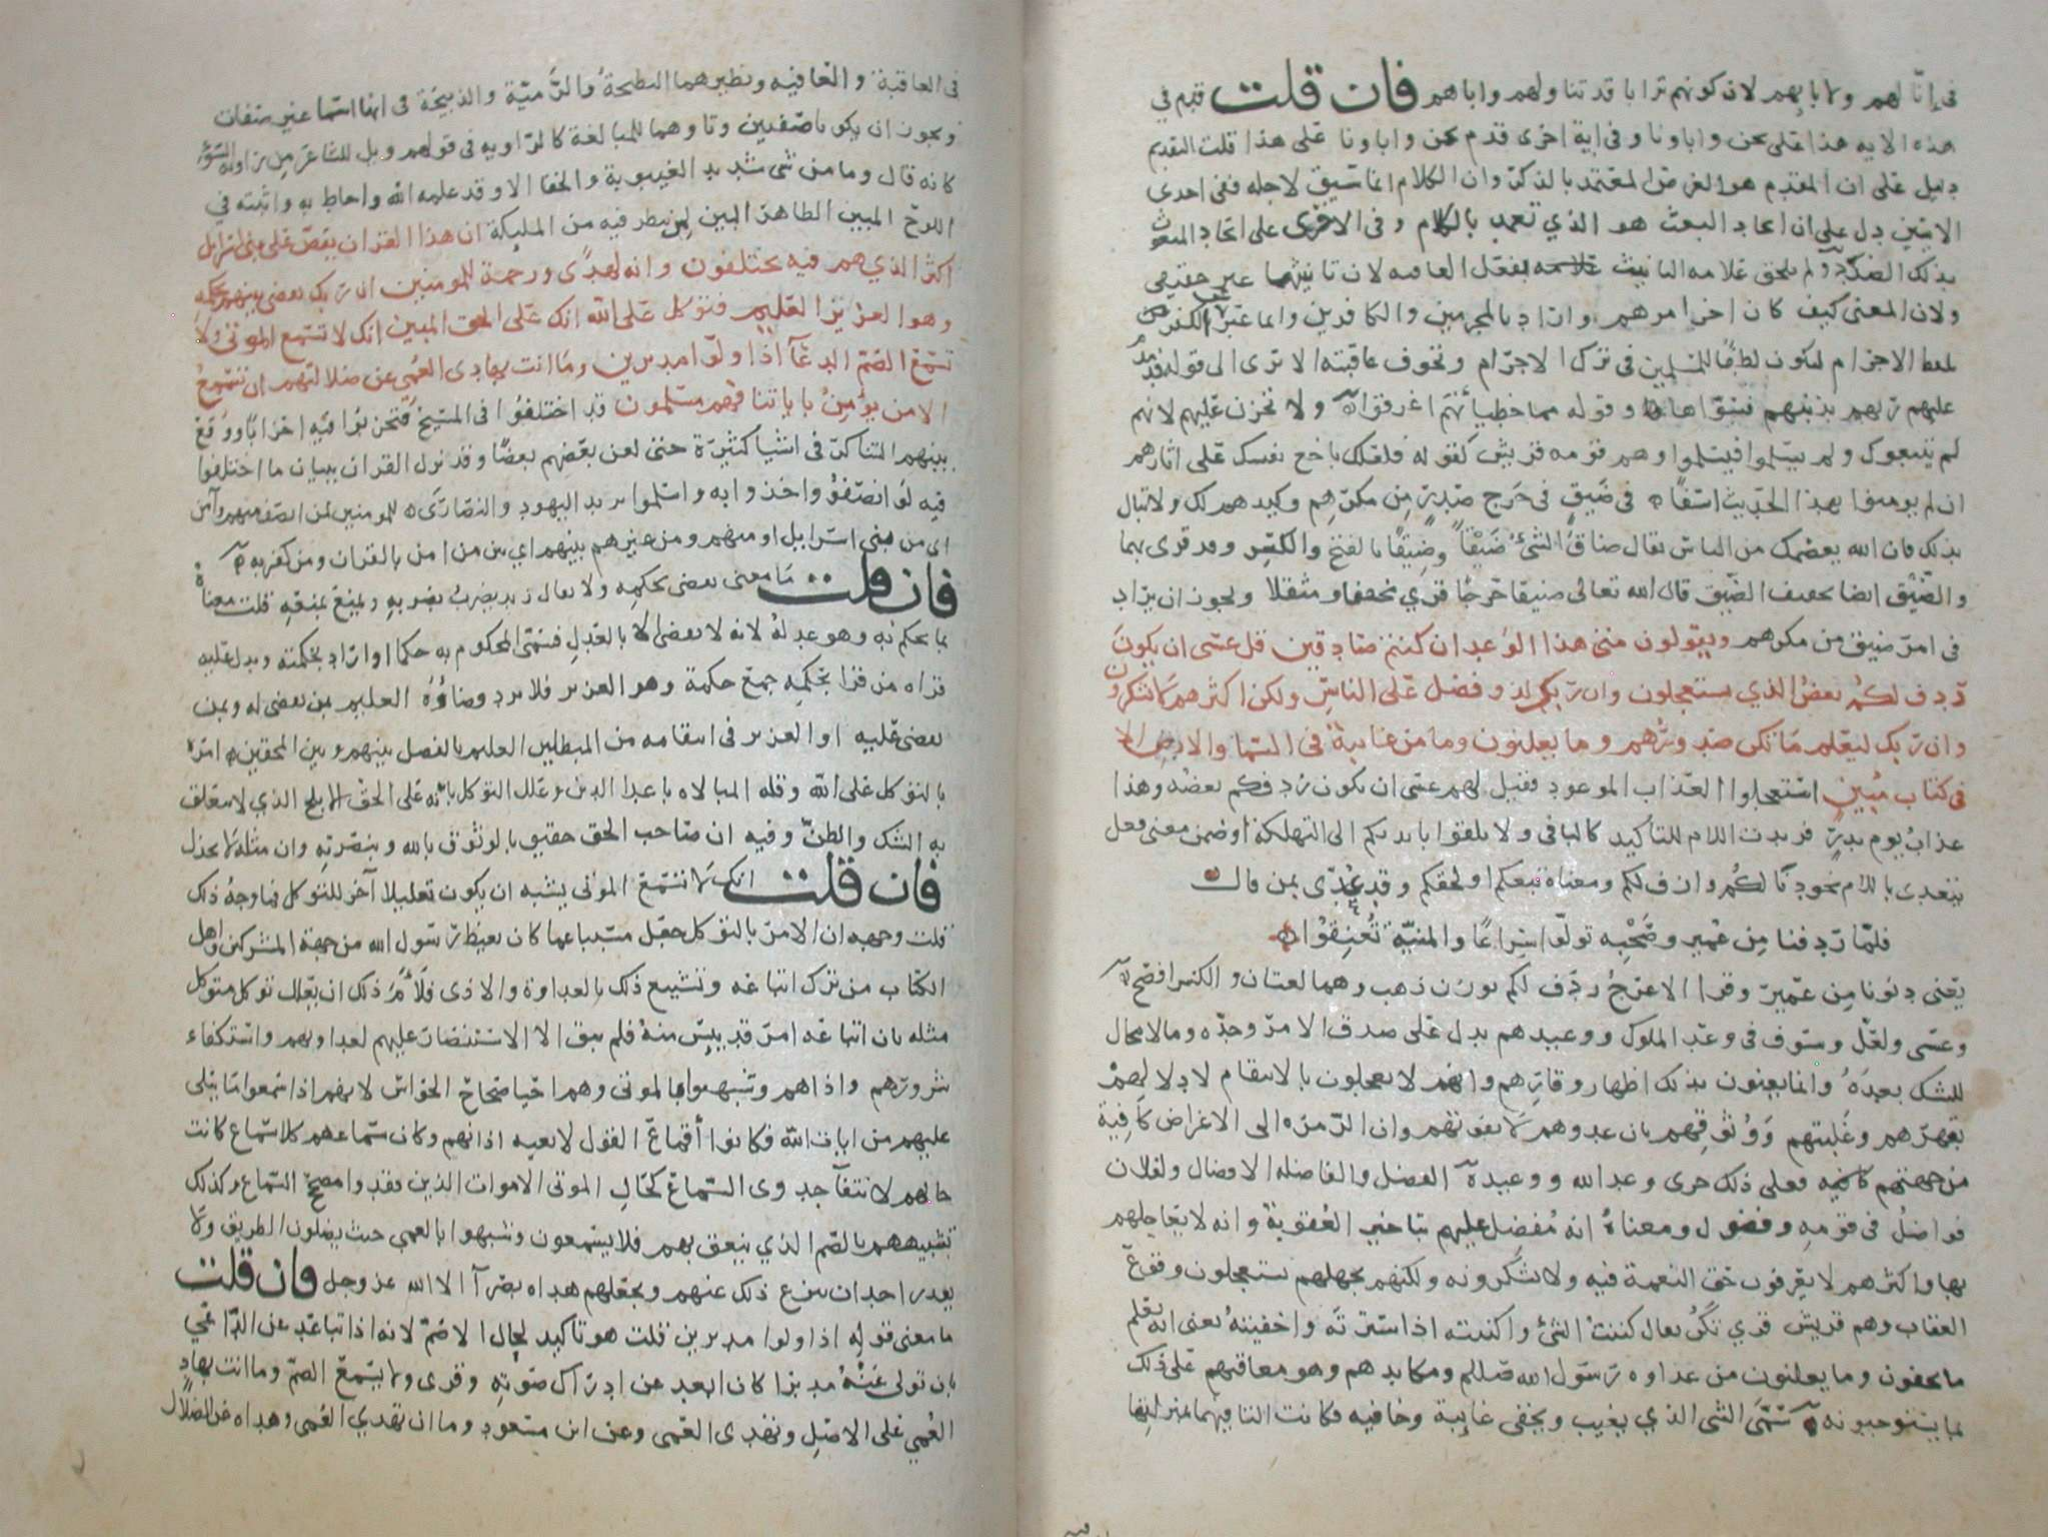 في إنّا لهم ولابائهم لان كونهم ترابا قد تناولهم واباهم فان قلت قدم في
هذه الايه هذا على نحن واباونا وفى اية اخرى قدم نحن واباونا على هذا قلت التقديم
دليل على ان المقدم هو الغرض المعتمد بالذكر وان الكلام انما سيق لاجله ففى احدى
الايتين دل على ان اتخاذ البعث هو الذي تعمد بالكلام وفى الاخرى على اتخاذ المبعوث
بذلك الصدد ولم يلحق علامه التانيث بفعل العاقبه لان تانيثها غير حقيقى
ولان المعنى كيف كان اخر امرهم واراد بالمجرمين والكافرين وانما عبر عن الكفر
بلفظ الاجرام ليكون لطفا للمسلمين فى ترك الاجرام وتخوف عاقبته الا ترى الى قوله فدمدم
عليهم ربهم بذنبهم فسوّاها وقوله مما خطيأتهم اغرقوا ولا تحزن عليهم لانهم
لم يتبعوك ولم يسلموا فيسلموا وهم قومه قريش كقوله فلعلك باخع نفسك على اثارهم
ان لم يومنوا بهذا الحديث اسفا في ضَيق في حَرج صدرٍ مِن مكرهم وكيدهم لك ولا تبال
بذلك فان الله يعصمك من الناس يقال ضاق الشئُ ضَيْقًا وضِيقًا بالفتح والكسر وقد قرى بهما
والضَّيْق ايضا تخفيف الضيّق قال الله تعالى ضيقا حرجا قرئ مخففا ومثقلا ويجوز ان يراد
فى امر ضيق من مكرهم ويقولون متى هذا الوعد ان كنتم صادقين قل عسى ان يكون
ردف لكم بعض الذي تستعجلون وان ربك لذو فضل على الناس ولكن اكثرهم لا يشكرون
وان ربك ليعلم ما تكن صدورهم وما يعلنون وما من غائبة في السما والارض الا
في كتاب مبين استعجلوا العذاب الموعود فقيل لهم عسى ان يكون ردفكم بعضه وهذا
عذابُ يوم بدرٍ فزيدت اللام للتاكيد كالبا فى ولا تلقوا بايديكم الى التهلكة او ضمن معنى فعل
يتعدى باللام نحو دنا لكم وازف لكم ومعناه تبعكم ولحقكم وقد عُدّى بمن قال
فلمّا ردفنا مِن عُمير وصَحْبِه تولّوا سِراعًا والمنيّة تُعنِقوا
يعنى دنونا مِن عمير وقرا الاعرج ردَف لكم بوزن ذهب وهما لغتان والكسر افصح
وعسى ولعلّ وسوف في وعد الملوك ووعيدهم يدل على صدق الامر وجدّه وما لا مجال
للشك بعدَهُ وانما يعنون بذلك اظهار وقارهم وانهم لا يعجلون بالانتقام لادلالهم
بقهرهم وغلبتهم وَوُثوقهم بان عدوهم لا يفوتهم وان الرّمزة الى الاغراض كافية
من جهتهم فعلى ذلك جرى وعد الله ووعيده الفضل والفاضله الافضال ولفلان
فواضلُ في قومه وفضول ومعناهُ انه مُفضل عليهم بتاخير العقوبة وانه لا يعاجلهم
بها واكثرهم لا يعرفون حق النعمة فيه ولا يشكرونه ولكنهم بجهلهم يستعجلون وقوع
العقاب وهم قريش قرئ تَكُنّ يقال كننتُ الشئ واكننته اذا سترتَه واخفيته يعنى انه يعلم
ما يخفون وما يعلنون من عداوه رسول الله صلعم ومكايدهم وهو معاقبهم على ذلك
بما يستوجبونه سَمّى الشئ الذي يغيب ويخفى غايبة وخافيه فكانت التا فيهما بمنزلتها
فى العاقبة والعافيه ونظيرهما النطيحةُ والرّميّة والذبيحة فى انها اسما غير صفات
ويجوز ان يكونا صفتين وتاوهما للمبالغة كالراويه فى قولهم ويل للشاعر من راوية السوء
كانه قال وما من شئ شديد الغيبوبة والخفا الا وقد علمه الله واحاط به واثبته في
اللوح المبين الظاهر البين لمن ينظر فيه من المليكة ان هذا القران يقصّ على بنى اسرايل
اكثر الذي هم فيه يختلفون وانه لهدًى ورحمة للمومنين ان ربك يقضى بينهم بحكمه
وهو العزيز العليم فتوكل على الله انك على الحق المبين انك لا تسمع الموتى ولا
تسمع الصّم الدعآ اذا ولّوا مدبرين وما انت بهادى العُمىِ عن ضلالتهم ان تسمعُ
الا من يؤمِنُ باياتنا فهم مسلمون قد اختلفوُا فى المسيح فتحزبوُا فيه احزابًا ووقع
بينهم التناكر فى اشيا كثيرة حتى لعن بعضهم بعضًا وقد نزل القران ببيان ما اختلفوا
فيه لو انصفوُا واخذوا به واسلموا يريد اليهود والنصارى للمومنين لمن انصف منهم وآمن
اى من بنى اسرايل او منهم ومن غيرهم بينهم اى بين من امن بالقران ومن كفر به
فان قلت مَا معنى يقضى بحكمِه ولا يقال زيد يضربُ بضربِه ويمنعُ بمنعِه قلت معناهُ
بما يحكم به وهو عدلهُ لانه لا يقضى الا بالعَدلِ فسَمّى المحكوم به حكما او اراد بحكمته ويدل عليه
قراه من قرا بحِكَمِه جمع حكمة وهو العزيز فلا يرد قضاؤُهُ العليم بمن يقضى له وبمن
يقضى عليه او العزيز فى انتقامه من المبطلين العليم بالفصل بينهم وبين المحقين امرَهُ
بالتوكل على الله وقله المبالاه باعدا الدين وعلل التوكل بانه على الحق الابلج الذي لا يتعلق
به الشك والظنّ وفيه ان صاحب الحق حقيق بالوثوق بالله وبنصْرته وان مثله لا يخذل
فان قلت انك لا تسمع الموتى يشبه ان يكون تعليلا آخر للتوكل فما وجهُ ذلك
قلت وجهه ان الامر بالتوكل جعل مسببا عما كان يغيظ رسول الله من جهة المشركين واهل
الكتاب من ترك اتباعه وتشييع ذلك بالعداوة والاذى فلاَءَمَ ذلك ان يعلل توكل متوكل
مثله بان اتباعه امر قد يئس منهُ فلم يبق الا الاستنصار عليهم لعداوتهم واستكفاء
شرورهم واذاهم وشبهوا بالموتى وهم احيا صحاح الحواس لانهم اذا سمعوا ما يتلى
عليهم من ايات الله فكانوا أقماعَ القول لا تعيه اذانهم وكان سماعهم كلا سماع كانت
حالهم لانتفآ جدوى السماع كحالِ الموتى الاموات الذين فقدوا مصحح السماع وكذلك
تشبيههم بالصّم الذي ينعق بهم فلا يسمعون وشبهوا بالعمى حيث يضلون الطريق ولا
يقدر احد ان ينزع ذلك عنهم ويجعلهم هداه بصرآ الا الله عز وجل فان قلت
ما معنى قولِه اذا ولوا مدبرين قلت هو تأكيد لحال الاصَمّ لانه اذا تباعَد عن الدّاعي
بان تولى عَنْهُ مدبرًا كان ابعد عن ادراك صوتِه وقرى ولا يَسمعُ الصمّ وما انت بهادٍ
العُمىَ على الاصلِ وتهدى العمى وعن ابن مسعود وما ان تهدى العُمى وهداه عن الضلال